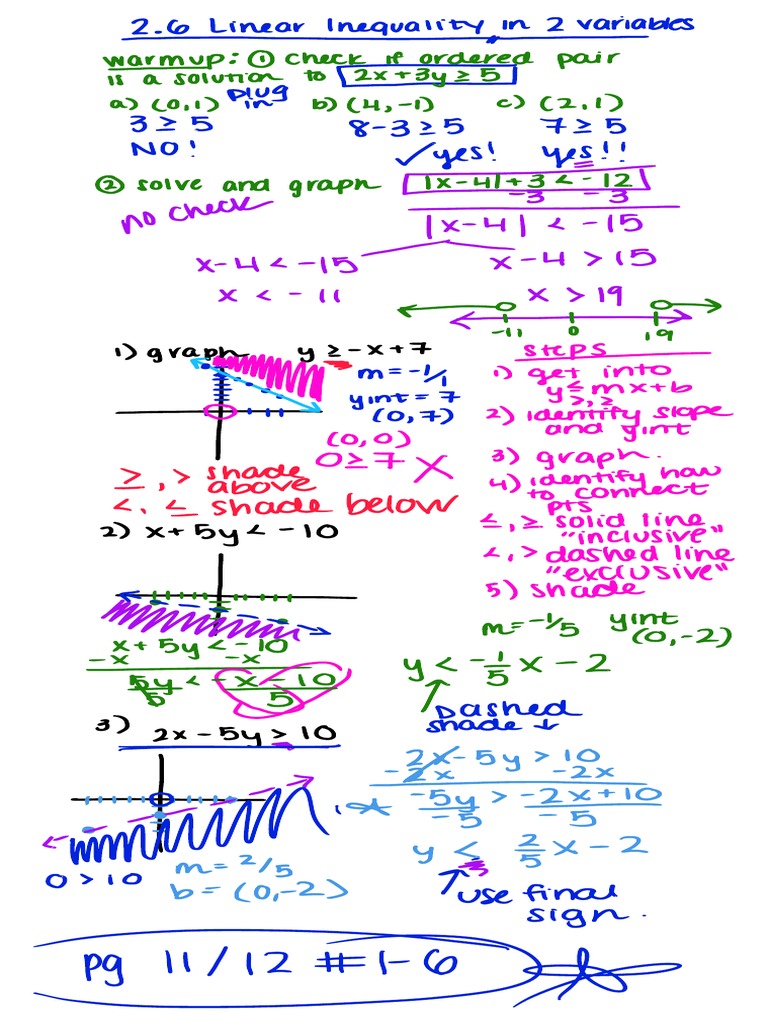 2.6 Linear Inequality in 2 variables
warmup: ① check if ordered pair
is a solution to 2x+3y≥5
a) (0,1) plug in b) (4,-1) c) (2,1)
3≥5 8-3≥5 7≥5
NO! ✓yes! yes!!
② solve and graph |x-4|+3<-12
-3 -3
no check
|x-4| < -15
x-4<-15 x-4 > 15
x < -11 x > 19
-11 0 19
1) graph y ≥ -x+7
m=-1/1
yint = 7
(0,7)
(0,0)
0≥7 X
≥,> shade
above
<,≤ shade below
steps
1) get into
y≤mx+b
>,≥
2) identify slope
and yint
3) graph.
4) identify how
to connect
pts
≤,≥ solid line
"inclusive"
<,> dashed line
"exclusive"
5) shade
2) x+5y<-10
x+5y<-10
-x -x
5y < -x-10
5 5
m=-1/5 yint
(0,-2)
y < -1/5 x - 2
Dashed
shade ↓
3) 2x-5y>10
2x-5y>10
-2x -2x
-5y > -2x+10
-5 -5
y < 2/5 x - 2
use final
sign.
0>10
m=2/5
b=(0,-2)
pg 11/12 #1-6